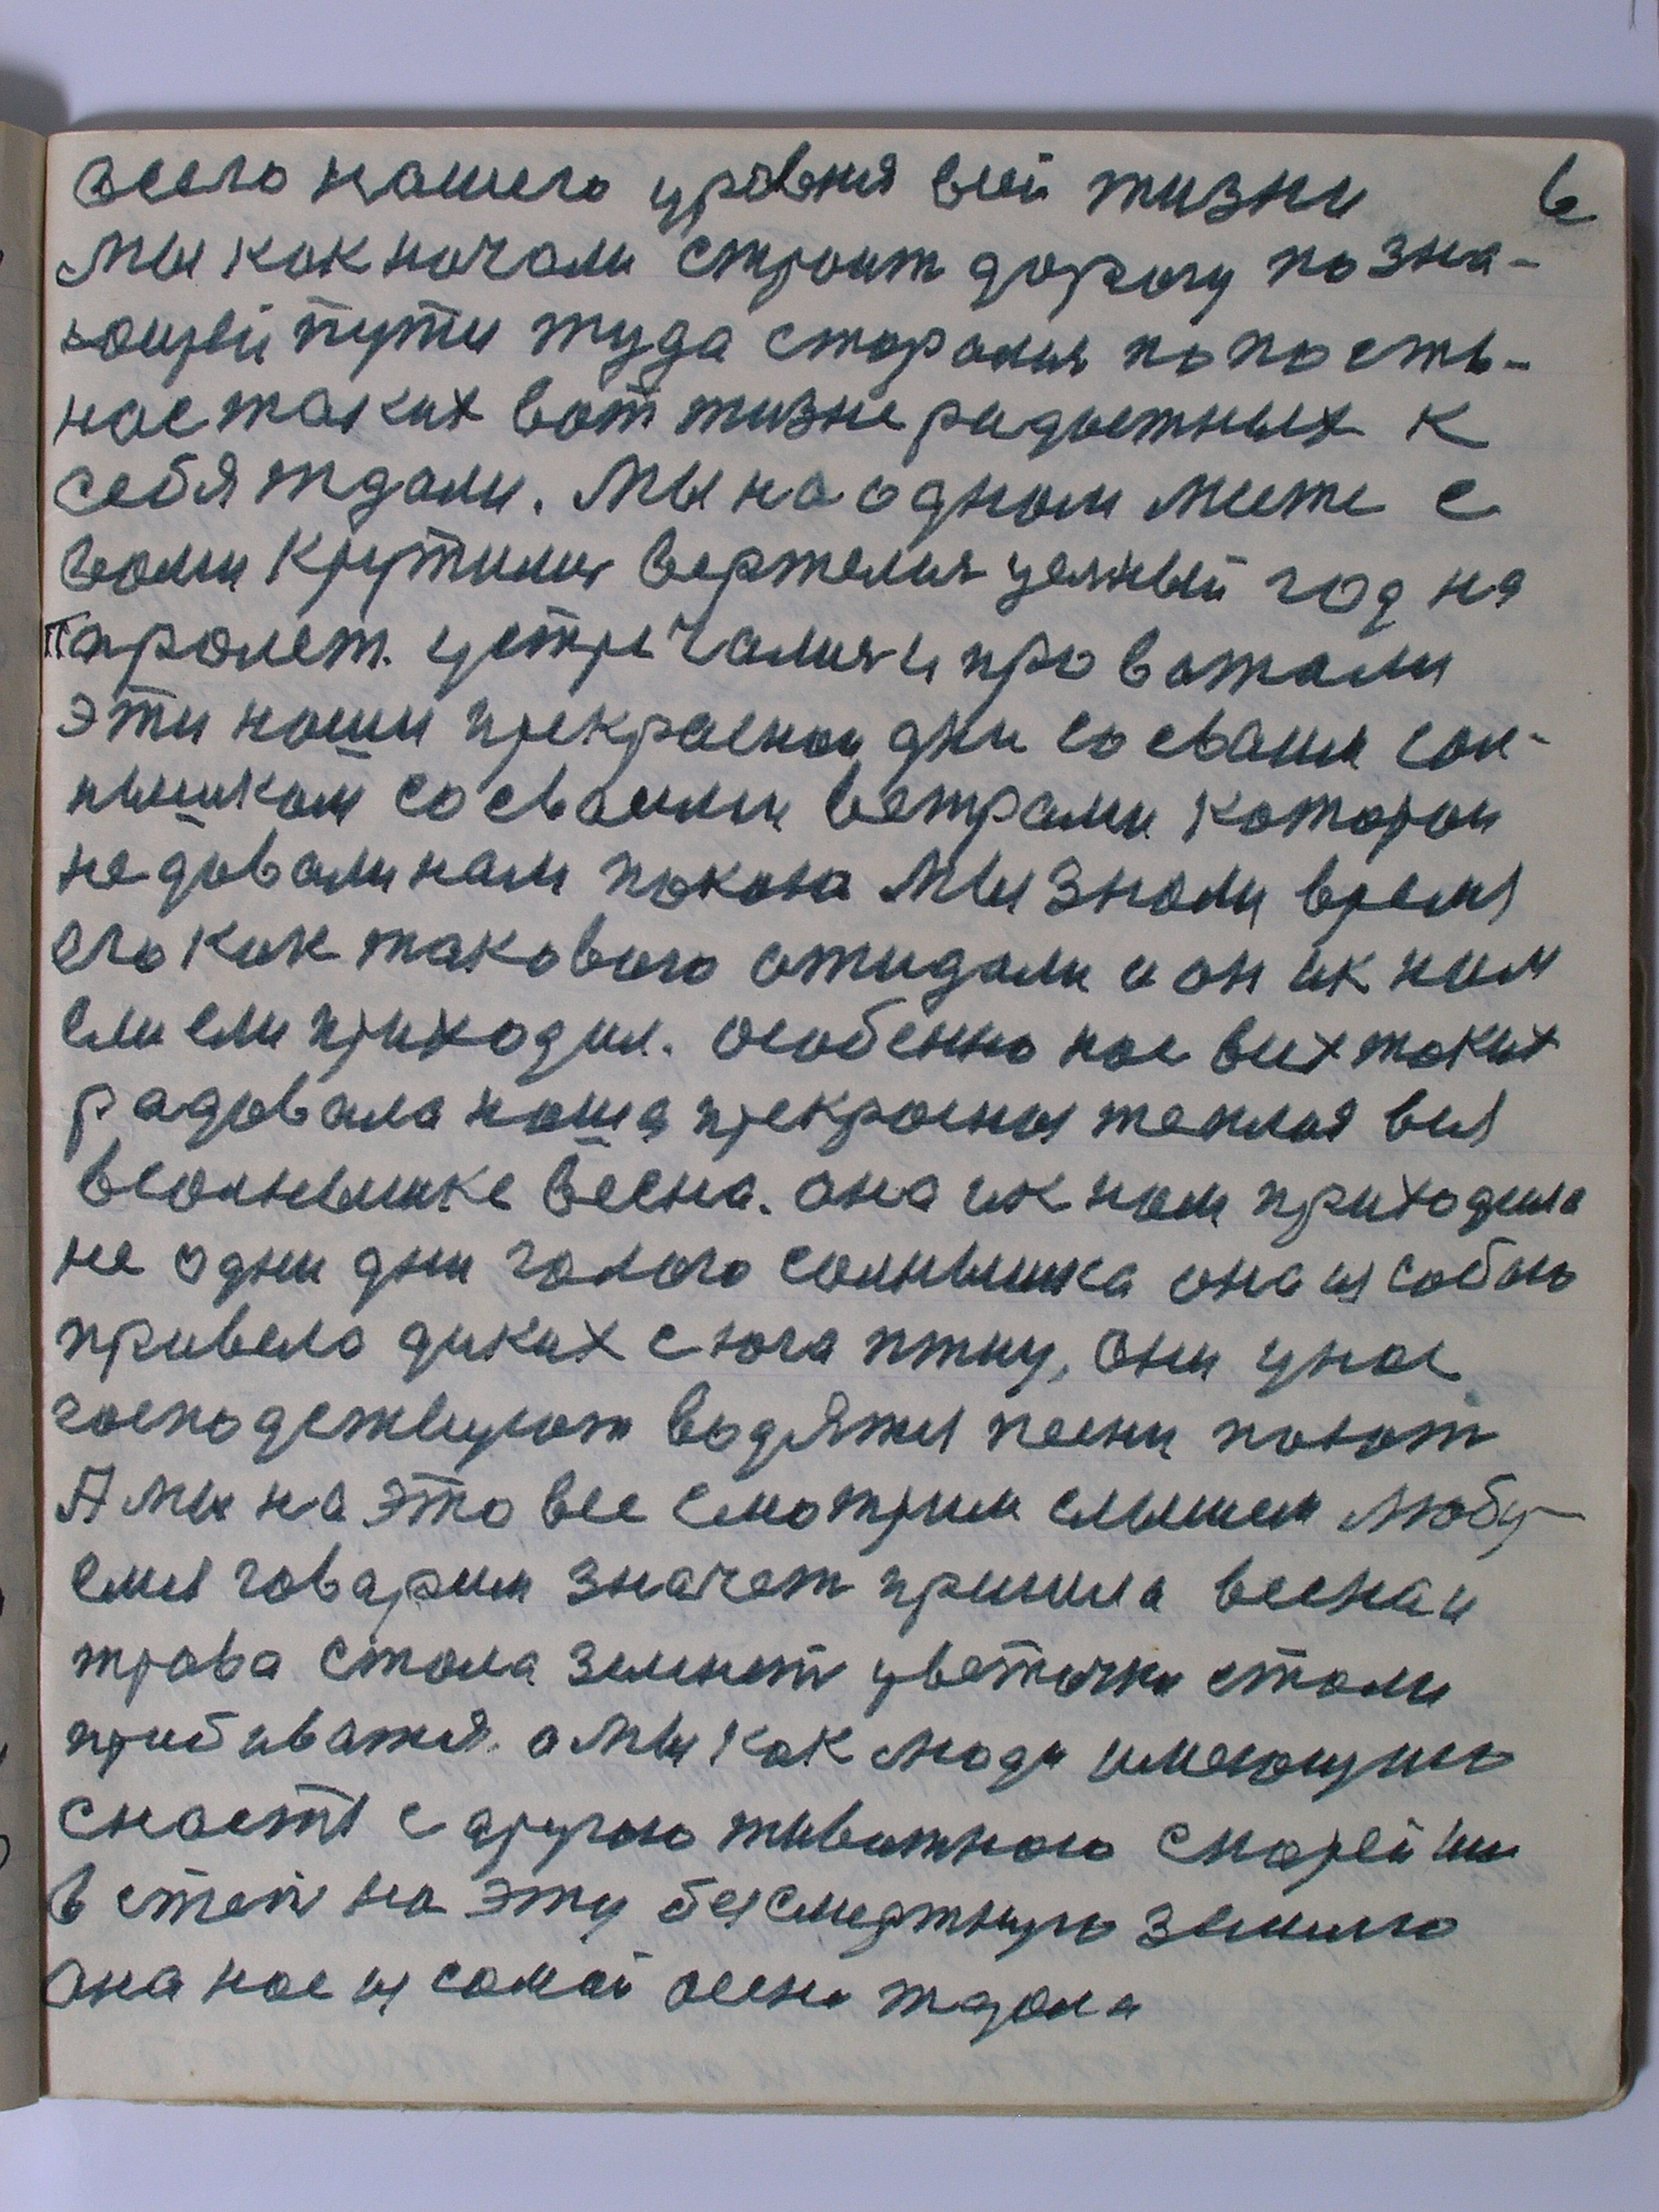 всего нашего уровня всей жизни 6
мы как начали строит дорогу по зна-
ющей пути туда старались попасть-
нас таких вот жизнерадостных к
себя ждали. Мы на одном месте с
вами крутились вертелися целный год на
паролет. устричались и проважали
эти наши прекраснаи дни со сваим сол-
нышкам со сваими ветрами каторои
не давали нам покоя Мы знали время
его как такового ажидали и он ик нам
ели ели приходил. особенно нас всих таких
радовала наша прекрасная теплая вся
всолнышке весна. она ик нам приходила
не одни дни голого солнышка она из собою
привела диких с юга птиц, они унас
господствуют водятся песни поют
А мы на это все смотрим слышем любу-
емся говарим значет пришла весна и
трава стала зеленет цветочки стали
прибиватся. а мы как люди имеющию
снасть с другою животною скорей
в степ на эту бессмертную землю
она нас из самой осени ждала